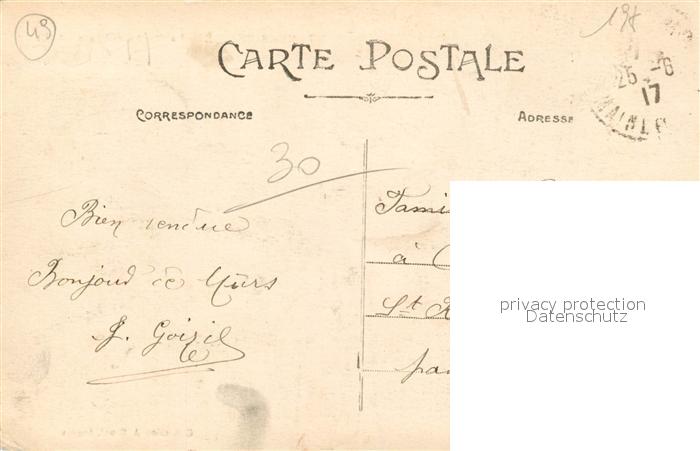 49
198
CARTE POSTALE
25 -6
17
CORRESPONDANCE
ADRESSE
30
Bien rendue
Bonjour de
J. Goizil
Fami
à
St
par
privacy protection
Datenschutz